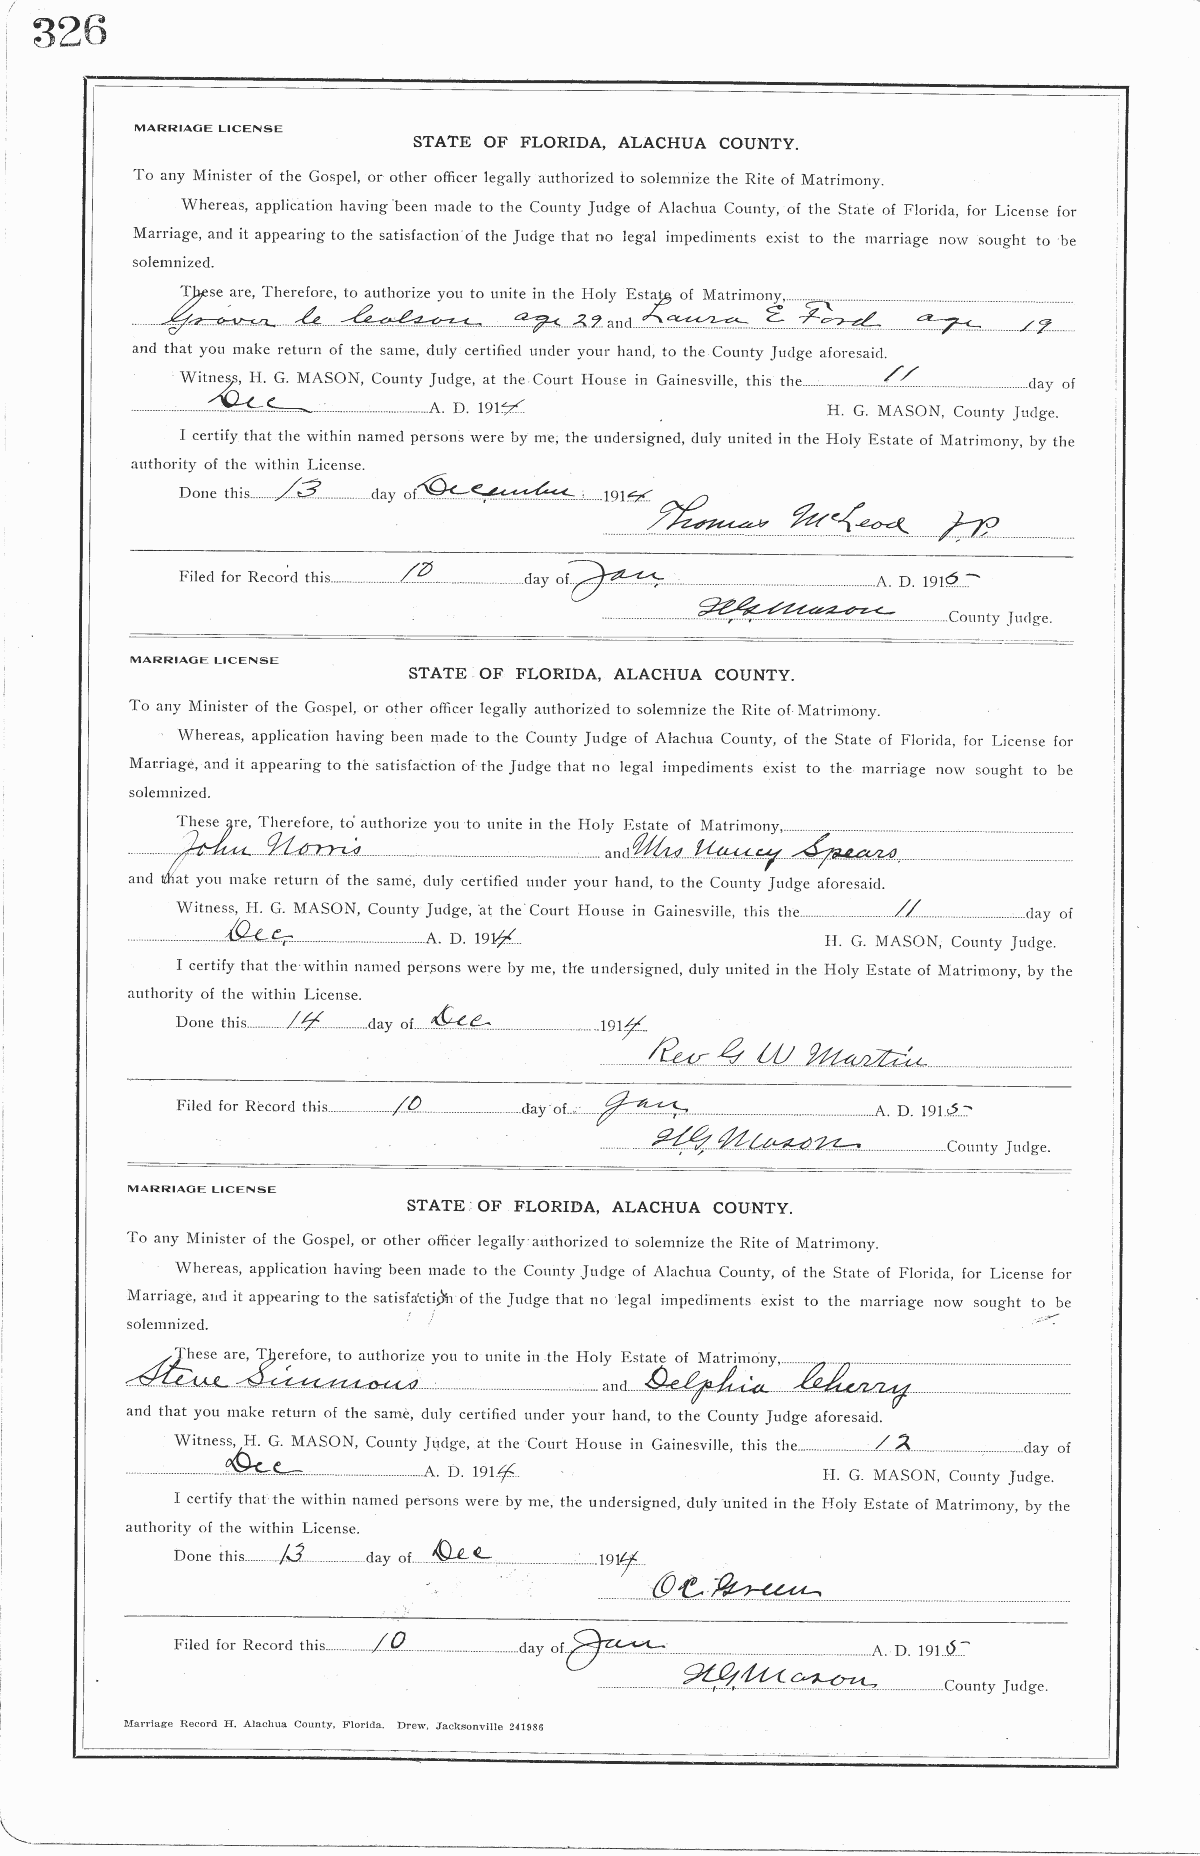 326
MARRIAGE LICENSE
STATE OF FLORIDA, ALACHUA COUNTY.
To any Minister of the Gospel, or other officer legally authorized to solemnize the Rite of Matrimony.
Whereas, application having been made to the County Judge of Alachua County, of the State of Florida, for License for
Marriage, and it appearing to the satisfaction of the Judge that no legal impediments exist to the marriage now sought to be
solemnized.
These are, Therefore, to authorize you to unite in the Holy Estate of Matrimony,
Grover C Colson age 29 and Laura E Ford age 19
and that you make return of the same, duly certified under your hand, to the County Judge aforesaid.
Witness, H. G. MASON, County Judge, at the Court House in Gainesville, this the 11 day of
Dec A. D. 1914 H. G. MASON, County Judge.
I certify that the within named persons were by me, the undersigned, duly united in the Holy Estate of Matrimony, by the
authority of the within License.
Done this 13 day of December 1914
Thomas McLeod J.P.
Filed for Record this 10 day of Jan, A. D. 1915
H.G. Mason County Judge.
MARRIAGE LICENSE
STATE OF FLORIDA, ALACHUA COUNTY.
To any Minister of the Gospel, or other officer legally authorized to solemnize the Rite of Matrimony.
Whereas, application having been made to the County Judge of Alachua County, of the State of Florida, for License for
Marriage, and it appearing to the satisfaction of the Judge that no legal impediments exist to the marriage now sought to be
solemnized.
These are, Therefore, to authorize you to unite in the Holy Estate of Matrimony,
John Norris and Mrs Nancy Spears
and that you make return of the same, duly certified under your hand, to the County Judge aforesaid.
Witness, H. G. MASON, County Judge, at the Court House in Gainesville, this the 11 day of
Dec, A. D. 1914 H. G. MASON, County Judge.
I certify that the within named persons were by me, the undersigned, duly united in the Holy Estate of Matrimony, by the
authority of the within License.
Done this 14 day of Dec 1914
Rev G W Martin
Filed for Record this 10 day of Jan, A. D. 1915
H.G. Mason County Judge.
MARRIAGE LICENSE
STATE OF FLORIDA, ALACHUA COUNTY.
To any Minister of the Gospel, or other officer legally authorized to solemnize the Rite of Matrimony.
Whereas, application having been made to the County Judge of Alachua County, of the State of Florida, for License for
Marriage, and it appearing to the satisfaction of the Judge that no legal impediments exist to the marriage now sought to be
solemnized.
These are, Therefore, to authorize you to unite in the Holy Estate of Matrimony,
Steve Simmons and Delphia Cherry
and that you make return of the same, duly certified under your hand, to the County Judge aforesaid.
Witness, H. G. MASON, County Judge, at the Court House in Gainesville, this the 12 day of
Dec A. D. 1914 H. G. MASON, County Judge.
I certify that the within named persons were by me, the undersigned, duly united in the Holy Estate of Matrimony, by the
authority of the within License.
Done this 13 day of Dec 1914
O.C. Green
Filed for Record this 10 day of Jan A. D. 1915
H.G. Mason County Judge.
Marriage Record H. Alachua County, Florida. Drew, Jacksonville 241986